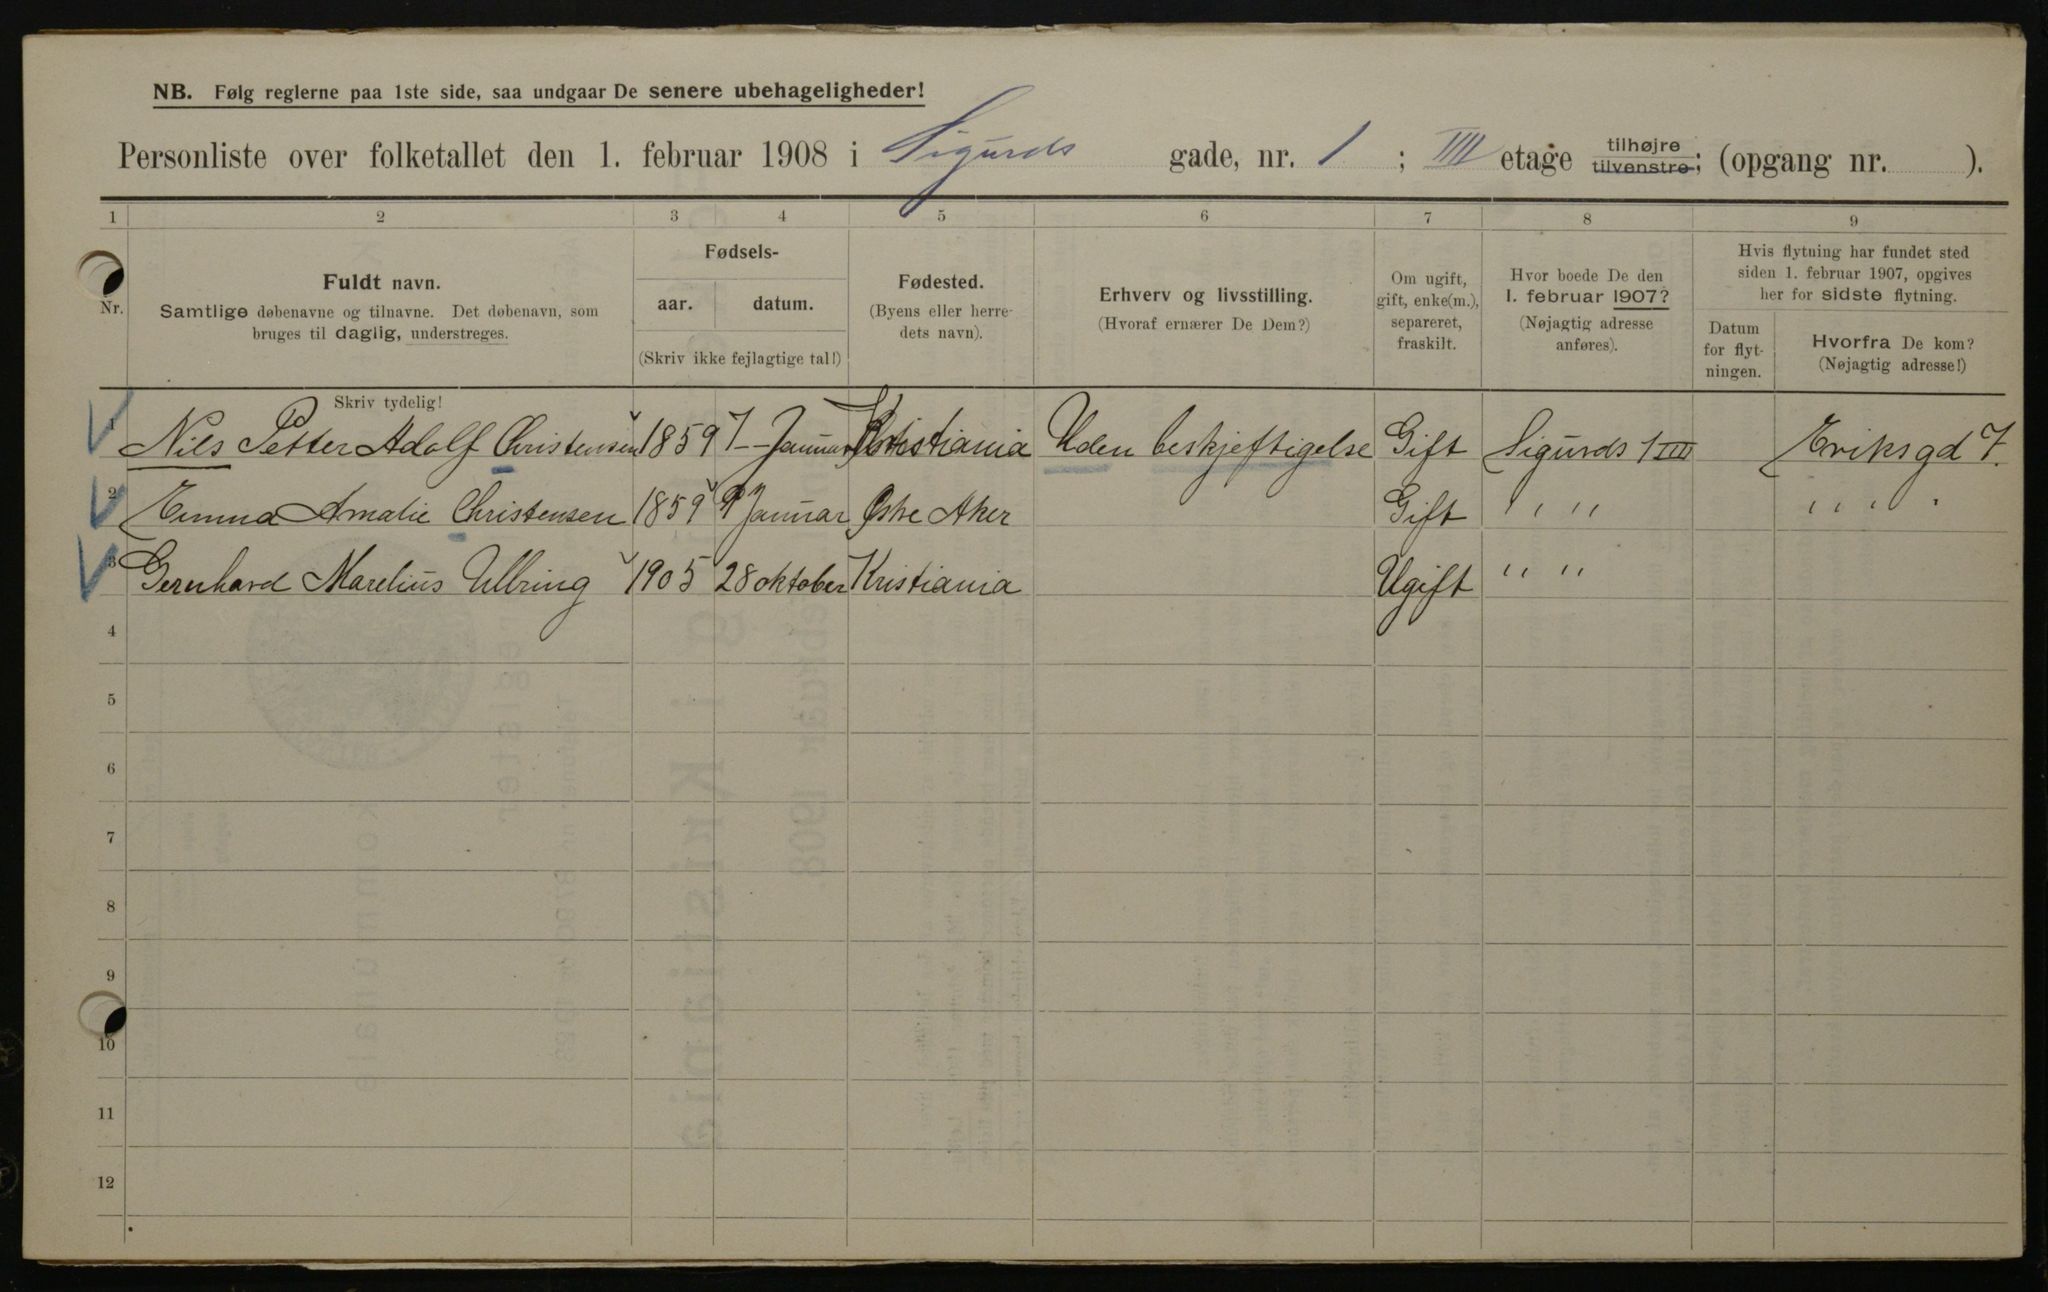 NB. Følg reglerne paa 1ste side, saa undgaar De senere ubehageligheder!
Personliste over folketallet den 1. februar 1908 i Sigurds gade, nr. 1 ; IIII etage tilhøjre tilvenstre; (opgang nr. ).
1 2 3 4 5 6 7 8 9
Nr.
Fuldt navn.
Samtlige døbenavne og tilnavne. Det døbenavn, som
bruges til daglig, understreges.
Fødsels-
aar. datum.
(Skriv ikke fejlagtige tal!)
Fødested.
(Byens eller herre-
dets navn).
Erhverv og livsstilling.
(Hvoraf ernærer De Dem?)
Om ugift,
gift, enke(m.),
separeret,
fraskilt.
Hvor boede De den
1. februar 1907?
(Nøjagtig adresse
anføres).
Hvis flytning har fundet sted
siden 1. februar 1907, opgives
her for sidste flytning.
Datum
for flyt-
ningen.
Hvorfra De kom?
(Nøjagtig adresse!)
Skriv tydelig!
1 Nils Petter Adolf Christensen 1859 7 - Januar Kristiania Uden beskjeftigelse Gift Sigurds 1 IIII Eriksgd 7.
2 Emma Amalie Christensen 1859 9 Januar Østre Aker Gift " " " " " "
3 Gernhard Marelius Ullring 1905 28 oktober Kristiania Ugift " " " "
4
5
6
7
8
9
10
11
12